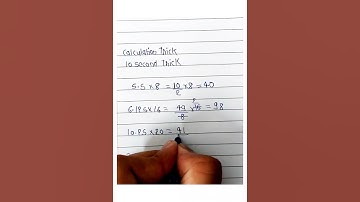 Calculation Thick
10 second Thick
5.5 x 8 = 10/2 x 8 = 40
6.125 x 16 = 49/8 x 16 = 98
10.25 x 20 = 91